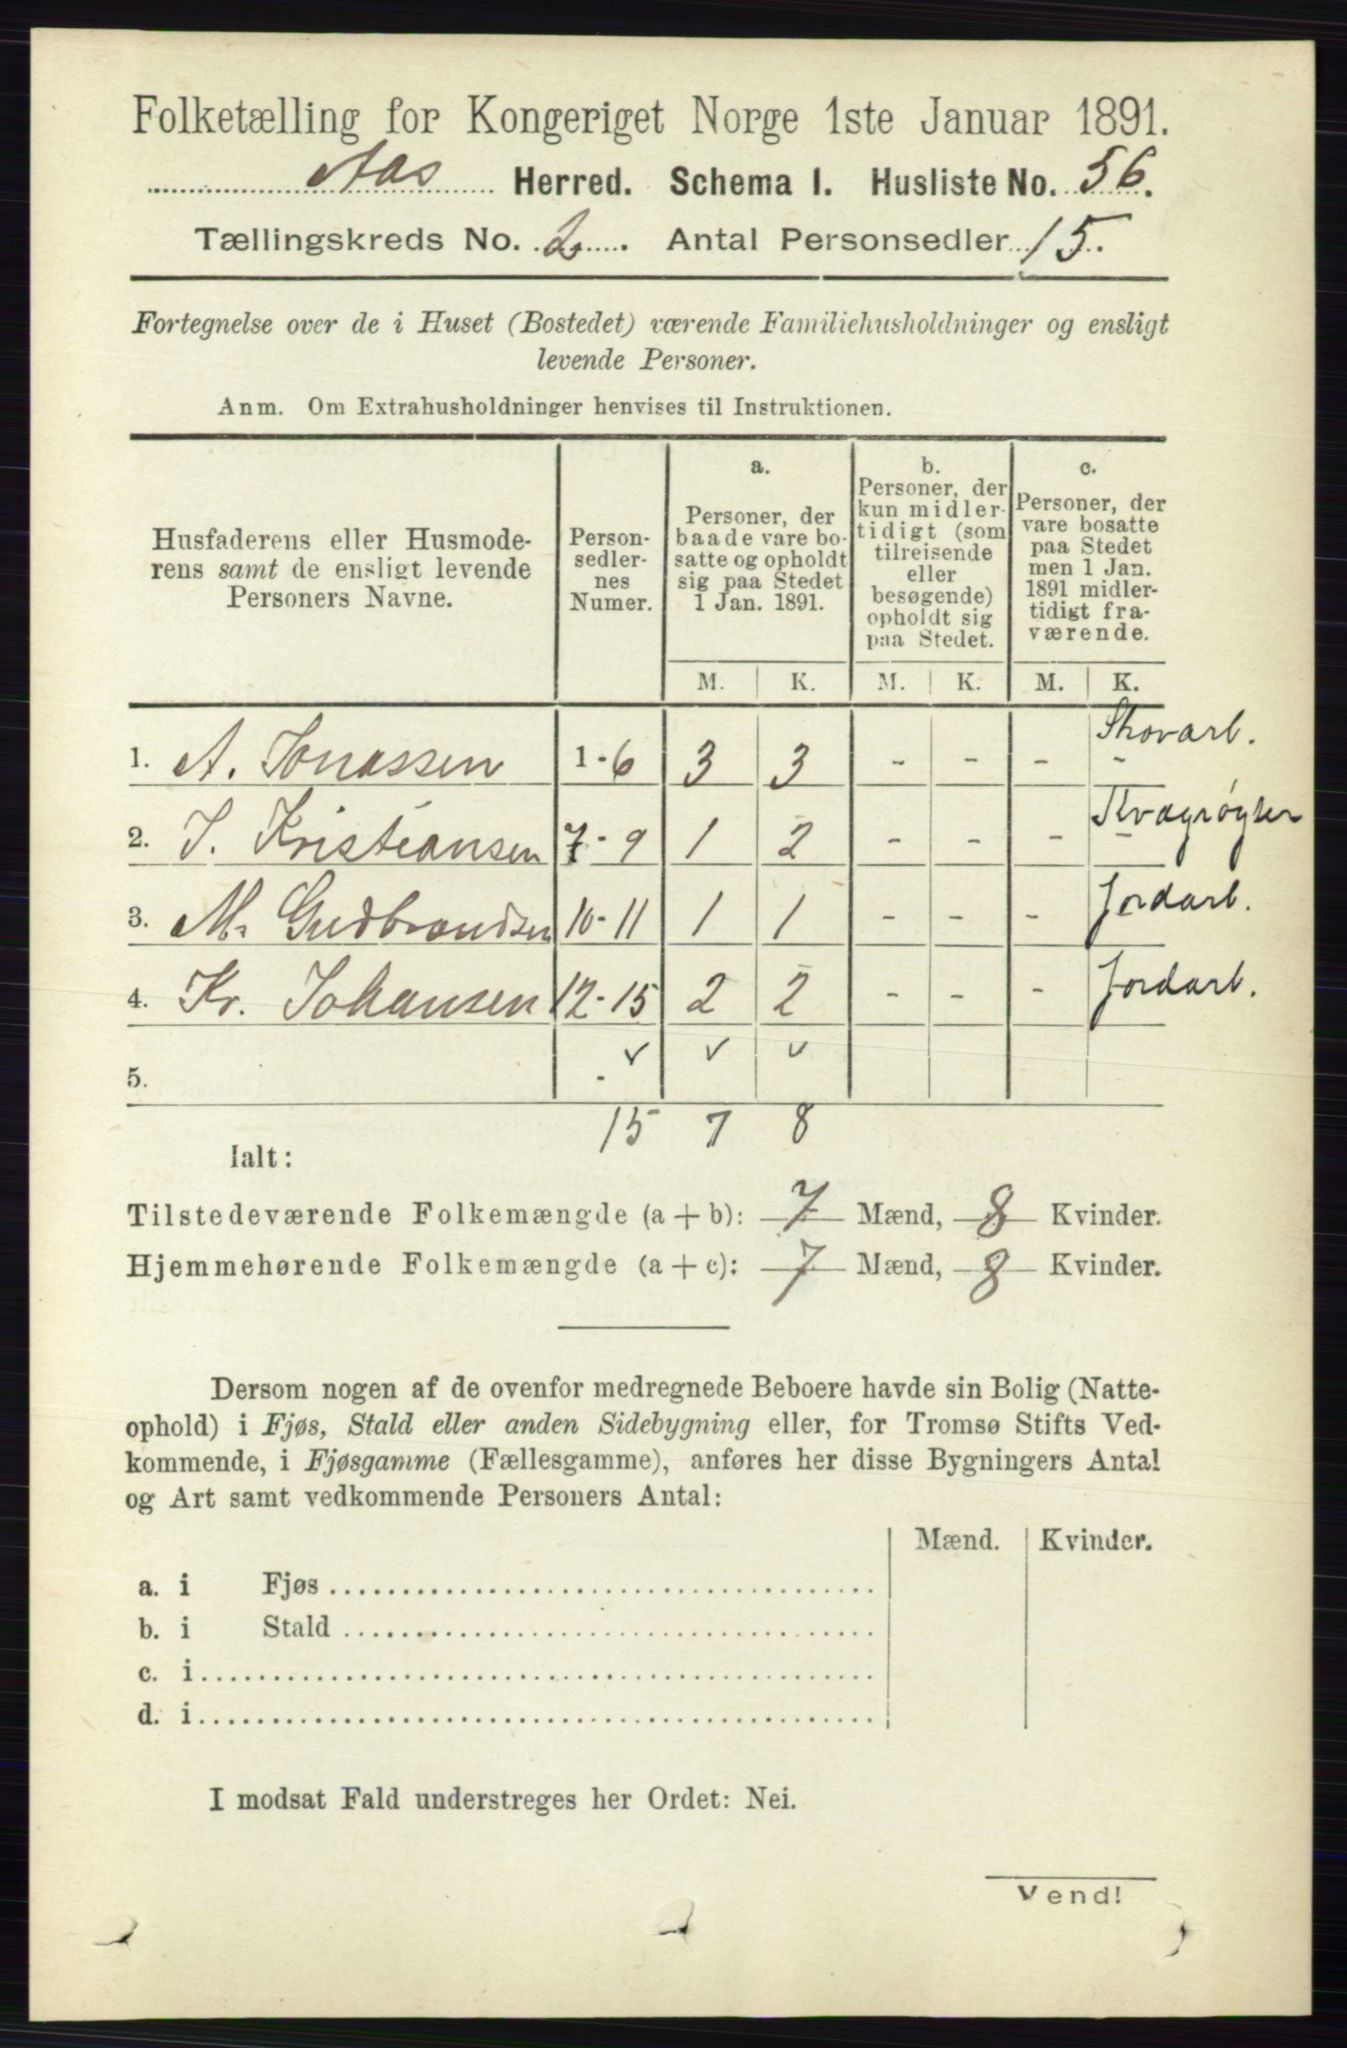 Folketælling for Kongeriget Norge 1ste Januar 1891.
Aas Herred. Schema I. Husliste No. 56.
Tællingskreds No. 2. Antal Personsedler 15.
Fortegnelse over de i Huset (Bostedet) værende Familiehusholdninger og ensligt
levende Personer.
Anm. Om Extrahusholdninger henvises til Instruktionen.
Husfaderens eller Husmode-
rens samt de ensligt levende
Personers Navne.
Person-
sedler-
nes
Numer.
a.
Personer, der
baade vare bo-
satte og opholdt
sig paa Stedet
1 Jan. 1891.
b.
Personer, der
kun midler-
tidigt (som
tilreisende
eller
besøgende)
opholdt sig
paa Stedet.
c.
Personer, der
vare bosatte
paa Stedet
men 1 Jan.
1891 midler-
tidigt fra-
værende.
M. K. M. K. M. K.
1. A. Jonassen 1-6 3 3 - - - - Skovarb.
2. J. Kristiansen 7-9 1 2 - - - - Kvægrøgter
3. M. Gudbrandsen 10-11 1 1 - - - Jordarb.
4. Kr. Johansen 12-15 2 2 - - - Jordarb.
5. -
15 7 8
Ialt:
Tilstedeværende Folkemængde (a + b): 7 Mænd, 8 Kvinder.
Hjemmehørende Folkemængde (a + c): 7 Mænd, 8 Kvinder.
Dersom nogen af de ovenfor medregnede Beboere havde sin Bolig (Natte-
ophold) i Fjøs, Stald eller anden Sidebygning eller, for Tromsø Stifts Ved-
kommende, i Fjøsgamme (Fællesgamme), anføres her disse Bygningers Antal
og Art samt vedkommende Personers Antal:
Mænd. Kvinder.
a. i Fjøs
b. i Stald
c. i
d. i
I modsat Fald understreges her Ordet: Nei.
Vend!